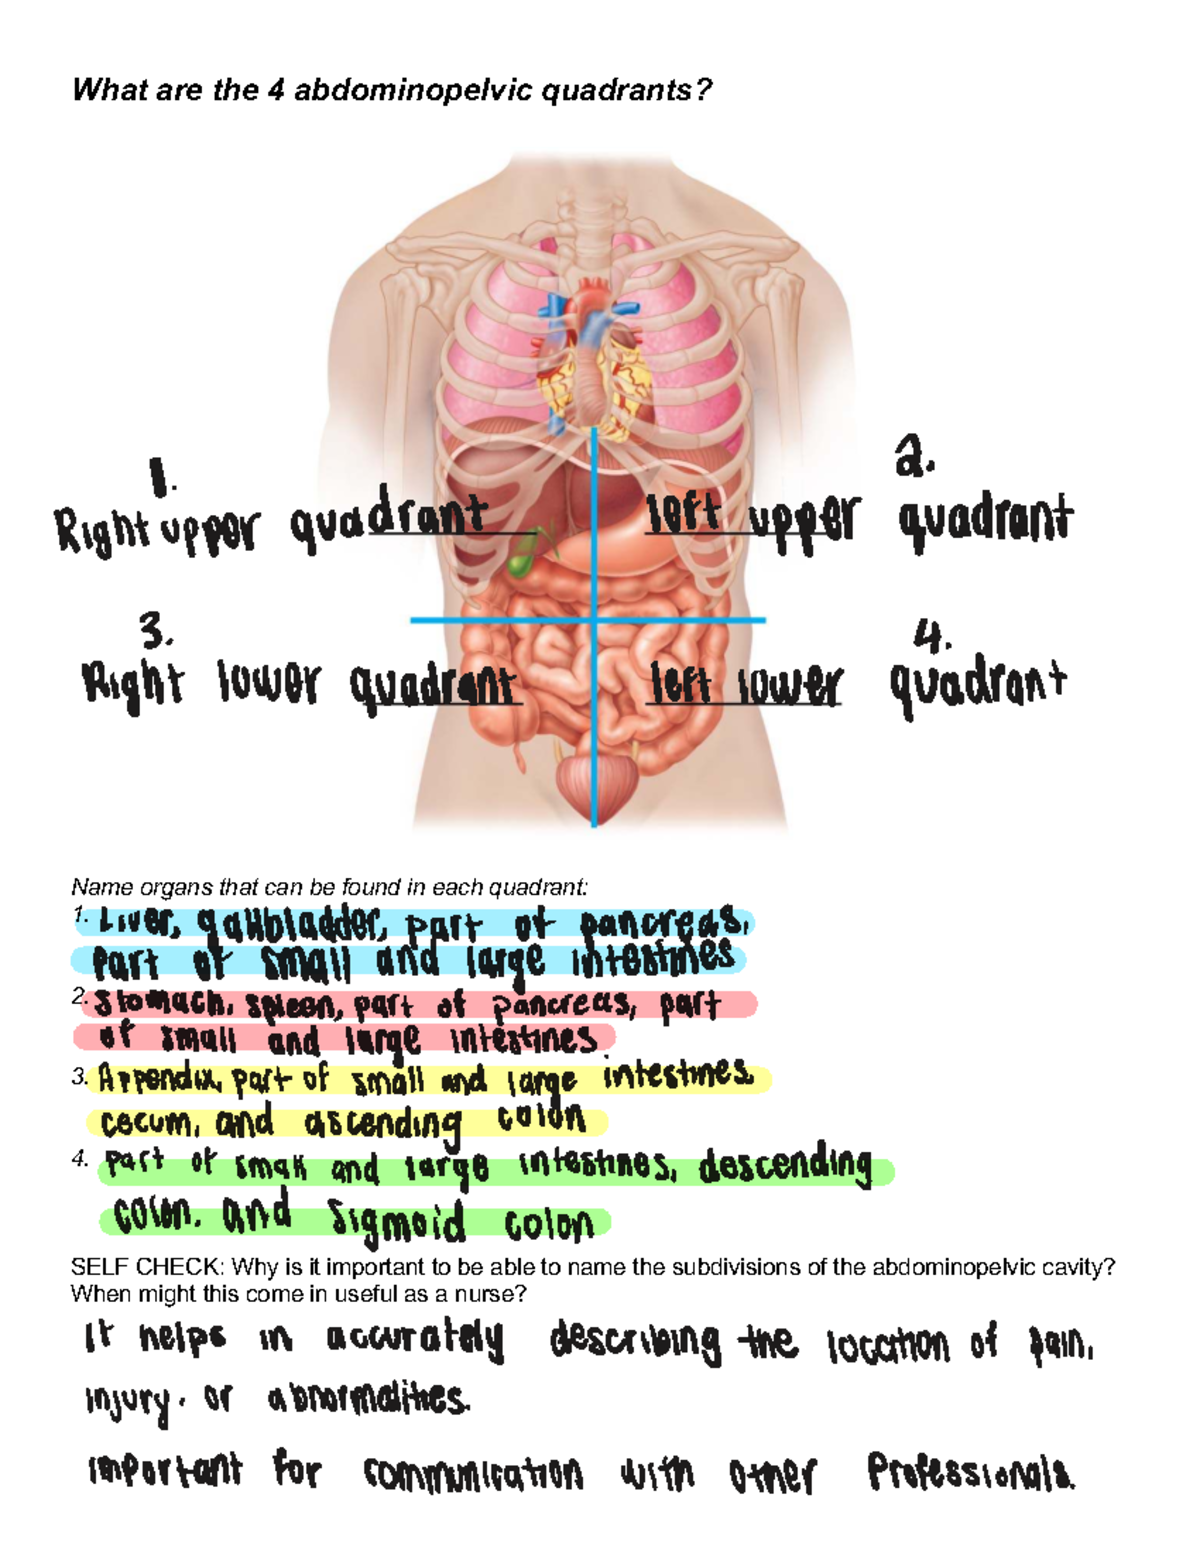 What are the 4 abdominopelvic quadrants?
1.
2.
Right upper quadrant
left upper quadrant
3.
4.
Right lower quadrant
left lower quadrant
Name organs that can be found in each quadrant:
1. Liver, gallbladder, part of pancreas,
part of small and large intestines
2. Stomach, spleen, part of pancreas, part
of small and large intestines
3. Appendix, part of small and large intestines
cecum, and ascending colon
4. part of small and large intestines, descending
colon, and sigmoid colon
SELF CHECK: Why is it important to be able to name the subdivisions of the abdominopelvic cavity?
When might this come in useful as a nurse?
It helps in accurately describing the location of pain,
injury, or abnormalities.
important for communication with other Professionals.